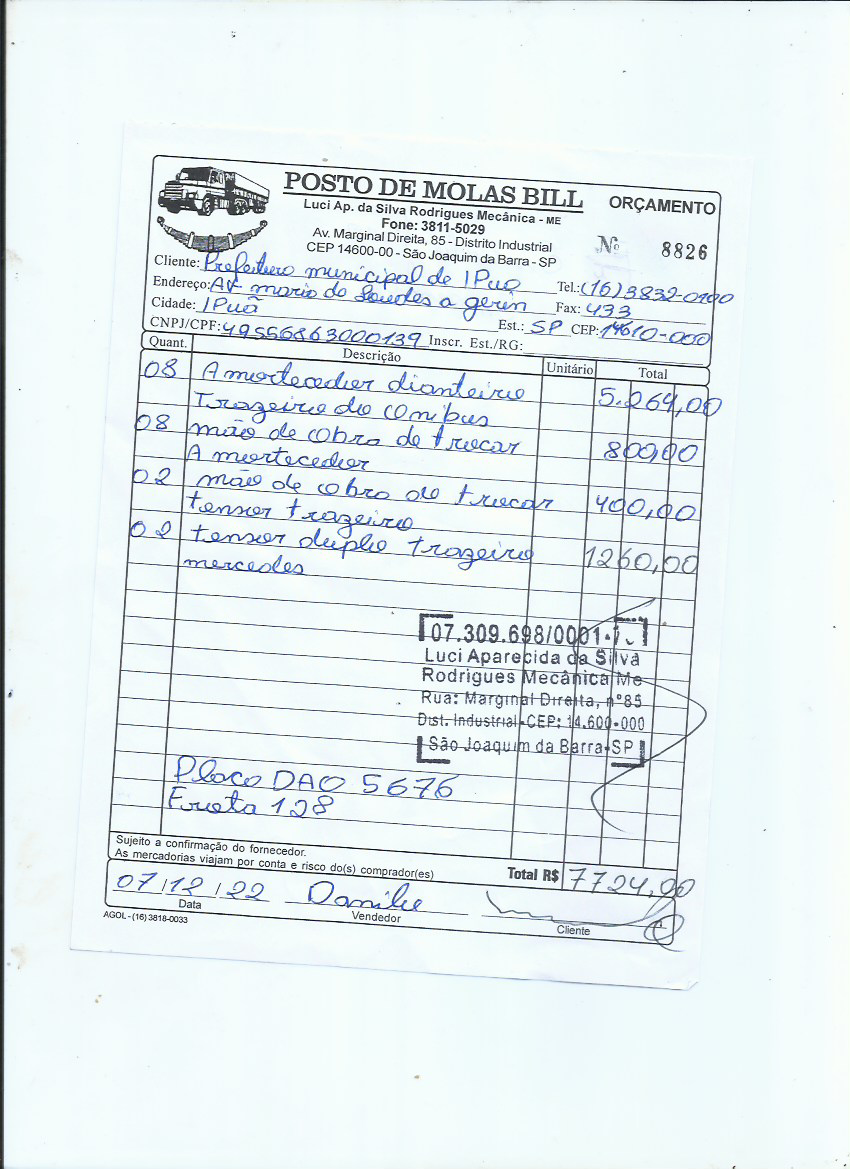 POSTO DE MOLAS BILL
ORÇAMENTO
Luci Ap. da Silva Rodrigues Mecânica - ME
Fone: 3811-5029
Av. Marginal Direita, 85 - Distrito Industrial
CEP 14600-00 - São Joaquim da Barra - SP
Nº 8826
Cliente: Prefeitura municipal de IPuã Tel.: (16) 3832-0100
Endereço: AV maria de Lourdes a gerin Fax: 433
Cidade: IPuã Est.: SP CEP: 14610-000
CNPJ/CPF: 49556863000139 Inscr. Est./RG:
Quant. Descrição Unitário Total
08 Amortecedor dianteiro 5.264,00
Trazeiro do Onibus
08 mão de obra de trocar 800,00
Amortecedor
02 mão de obra de trocar 400,00
tensor trazeiro
02 tensor duplo trazeiro 1260,00
mercedes
07.309.698/0001-
Luci Aparecida da Silva
Rodrigues Mecânica Me
Rua: Marginal Direita, nº85
Dist. Industrial-CEP: 14.600-000
São Joaquim da Barra-SP
Placa DAO 5676
Frota 128
Sujeito a confirmação do fornecedor.
As mercadorias viajam por conta e risco do(s) comprador(es)
Total R$ 7724,00
07/12/22 Danilo
Data Vendedor Cliente
AGOL - (16) 3818-0033